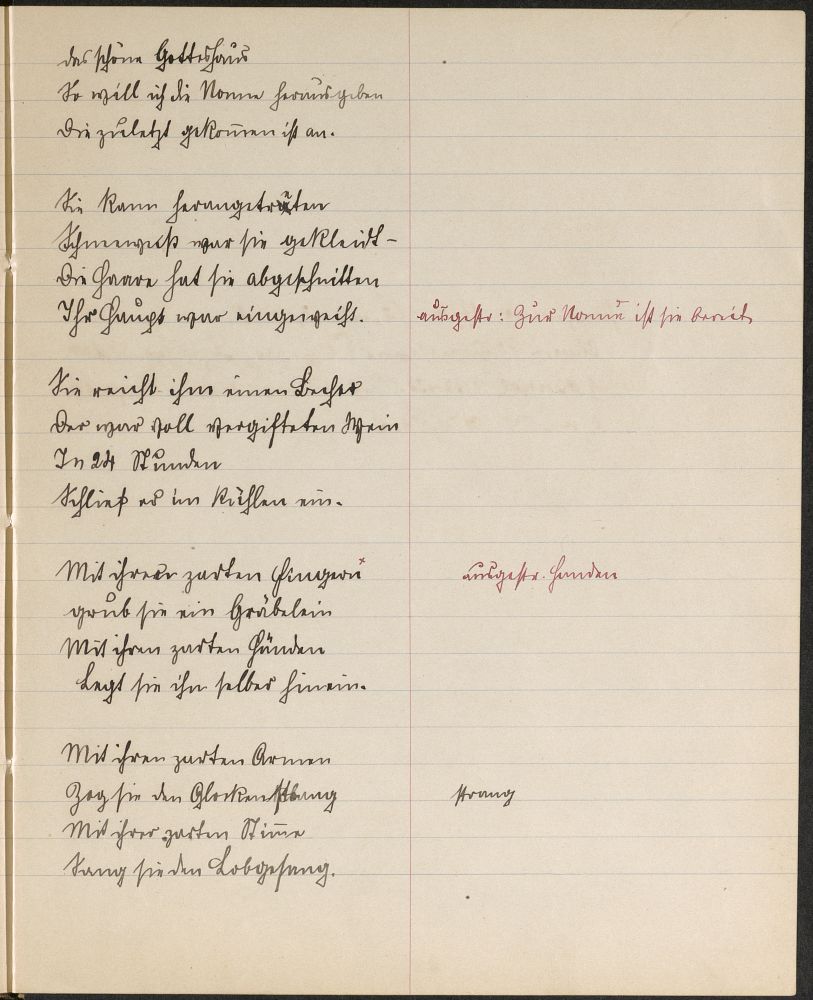 das schöne Gotteshaus
So will ich die Nonne herausgeben
Die zuletzt gekom̄en ist an.
Sie kann herangeträten
Schneeweiß war sie gekleidt –
Die Haare hat sie abgeschnitten
Ihr Haupt war eingeweiht. ausgestr: Zur Nonne ist sie bereit
Sie reicht ihm einen Becher
Der war voll vergifteten Wein
In 24 Stunden
Schlief er im Kühlen ein.
Mit ihren zarten Fingern x ausgestr. Handen
grub sie ein Gräbelein
Mit ihren zarten Händen
Legt sie ihn selber hinein.
Mit ihren zarten Armen
Zog sie den Glocken strang
Mit ihrer zarten Stim̄e
Sang sie den Lobgesang.